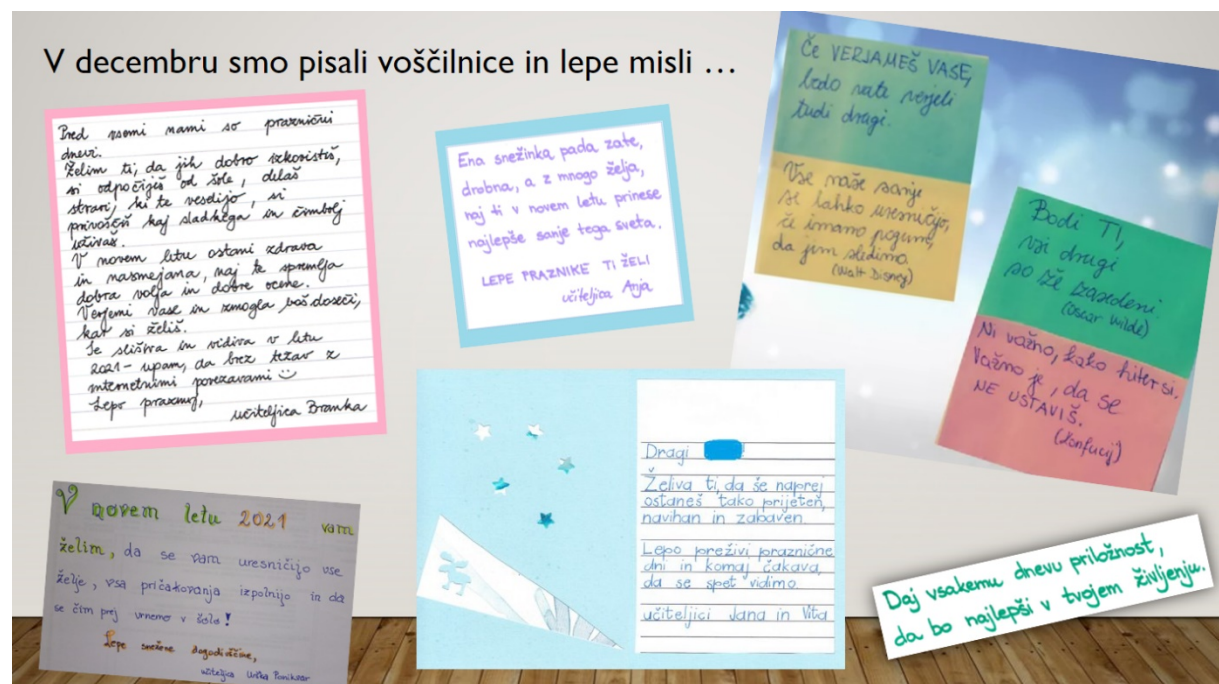 V decembru smo pisali voščilnice in lepe misli …
Pred vsemi nami so praznični
dnevi.
Želim ti, da jih dobro izkoristiš,
si odpočiješ od šole, delaš
stvari, ki te veselijo, si
privoščiš kaj sladkega in čimbolj
uživaš.
V novem letu ostani zdrava
in nasmejana, naj te spremlja
dobra volja in dobre ocene.
Verjemi vase in zmogla boš doseči,
kar si želiš.
Se slišiva in vidiva v letu
2021 - upam, da brez težav z
internetnimi povezavami
Lepo praznuj,
učiteljica Branka
Ena snežinka pada zate,
drobna, a z mnogo želja,
naj ti v novem letu prinese
najlepše sanje tega sveta.
LEPE PRAZNIKE TI ŽELI
učiteljica Anja
Če VERJAMEŠ VASE,
bodo vate verjeli
tudi drugi.
Vse naše sanje
se lahko uresničijo,
če imamo pogum,
da jim sledimo.
(Walt Disney)
Bodi TI,
vsi drugi
so že zasedeni.
(Oscar Wilde)
Ni važno, kako hiter si.
Važno je, da se
NE USTAVIŠ.
(Konfucij)
V novem letu 2021 vam
želim, da se vam uresničijo vse
želje, vsa pričakovanja izpolnijo in da
se čim prej vrnemo v šolo!
Lepe snežene dogodivščine,
učiteljica Urška Ponikvar
Dragi
Želiva ti, da še naprej
ostaneš tako prijeten,
navihan in zabaven.
Lepo preživi praznične
dni in komaj čakava,
da se spet vidimo.
učiteljici Jana in Vita
Daj vsakemu dnevu priložnost,
da bo najlepši v tvojem življenju.